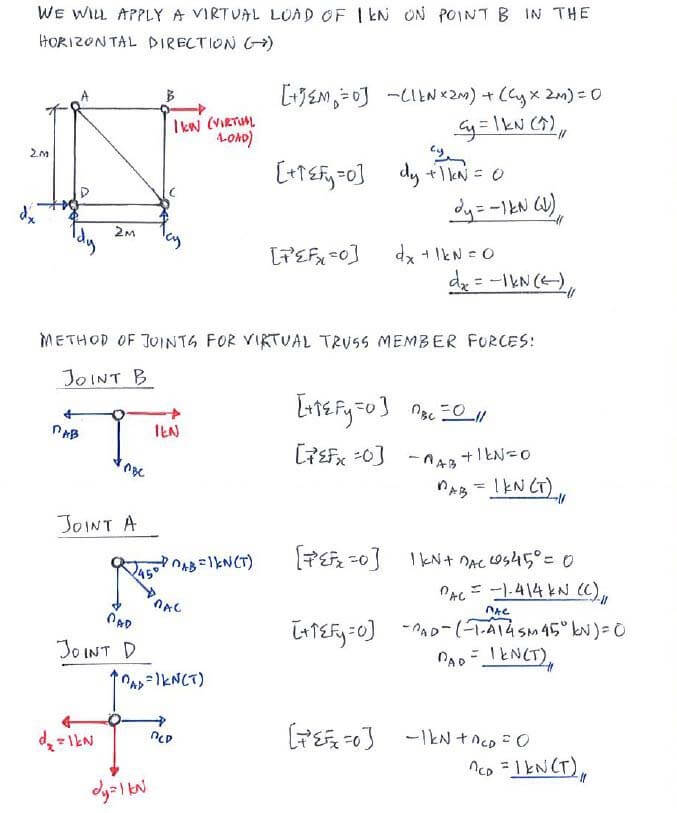 WE WILL APPLY A VIRTUAL LOAD OF 1 kN ON POINT B IN THE
HORIZONTAL DIRECTION (→)
A
B
1 kN (VIRTUAL LOAD)
2M
D
C
dx
dy
2M
Cy
[+↺ΣM_D=0] -(1kN×2M) + (Cy × 2M) = 0
Cy = 1 kN (↑)
[+↑ΣFy=0] dy + 1kN = 0
Cy
dy = -1kN (↓)
[→+ΣFx=0] dx + 1kN = 0
dx = -1kN (←)
METHOD OF JOINTS FOR VIRTUAL TRUSS MEMBER FORCES:
JOINT B
nAB
1kN
nBC
[+↑ΣFy=0] nBC = 0
[→+ΣFx=0] -nAB + 1kN = 0
nAB = 1kN (T)
JOINT A
nAB = 1kN(T)
45°
nAC
nAD
[→+ΣFx=0] 1kN + nAC cos45° = 0
nAC = -1.414 kN (C)
nAC
[+↑ΣFy=0] -nAD - (-1.414 SIN 45° kN) = 0
nAD = 1kN(T)
JOINT D
nAD = 1kN(T)
dx = 1kN
nCD
dy = 1 kN
[→+ΣFx=0] -1kN + nCD = 0
nCD = 1kN(T)